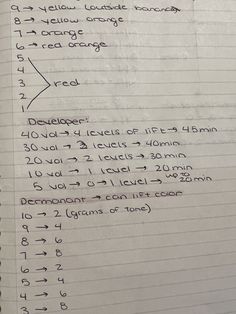 9 → yellow (outside banana)
8 → yellow orange
7 → orange
6 → red orange
5
4
3 > red
2
1
Developer:
40 vol → 4 levels of lift → 45 min
30 vol → 3 levels → 40 min
20 vol → 2 levels → 30 min
10 vol → 1 level → 20 min
5 vol → 0 → 1 level → up to 20 min
Permanant → can lift color
10 → 2 (grams of tone)
9 → 4
8 → 6
7 → 8
6 → 2
5 → 4
4 → 6
3 → 8